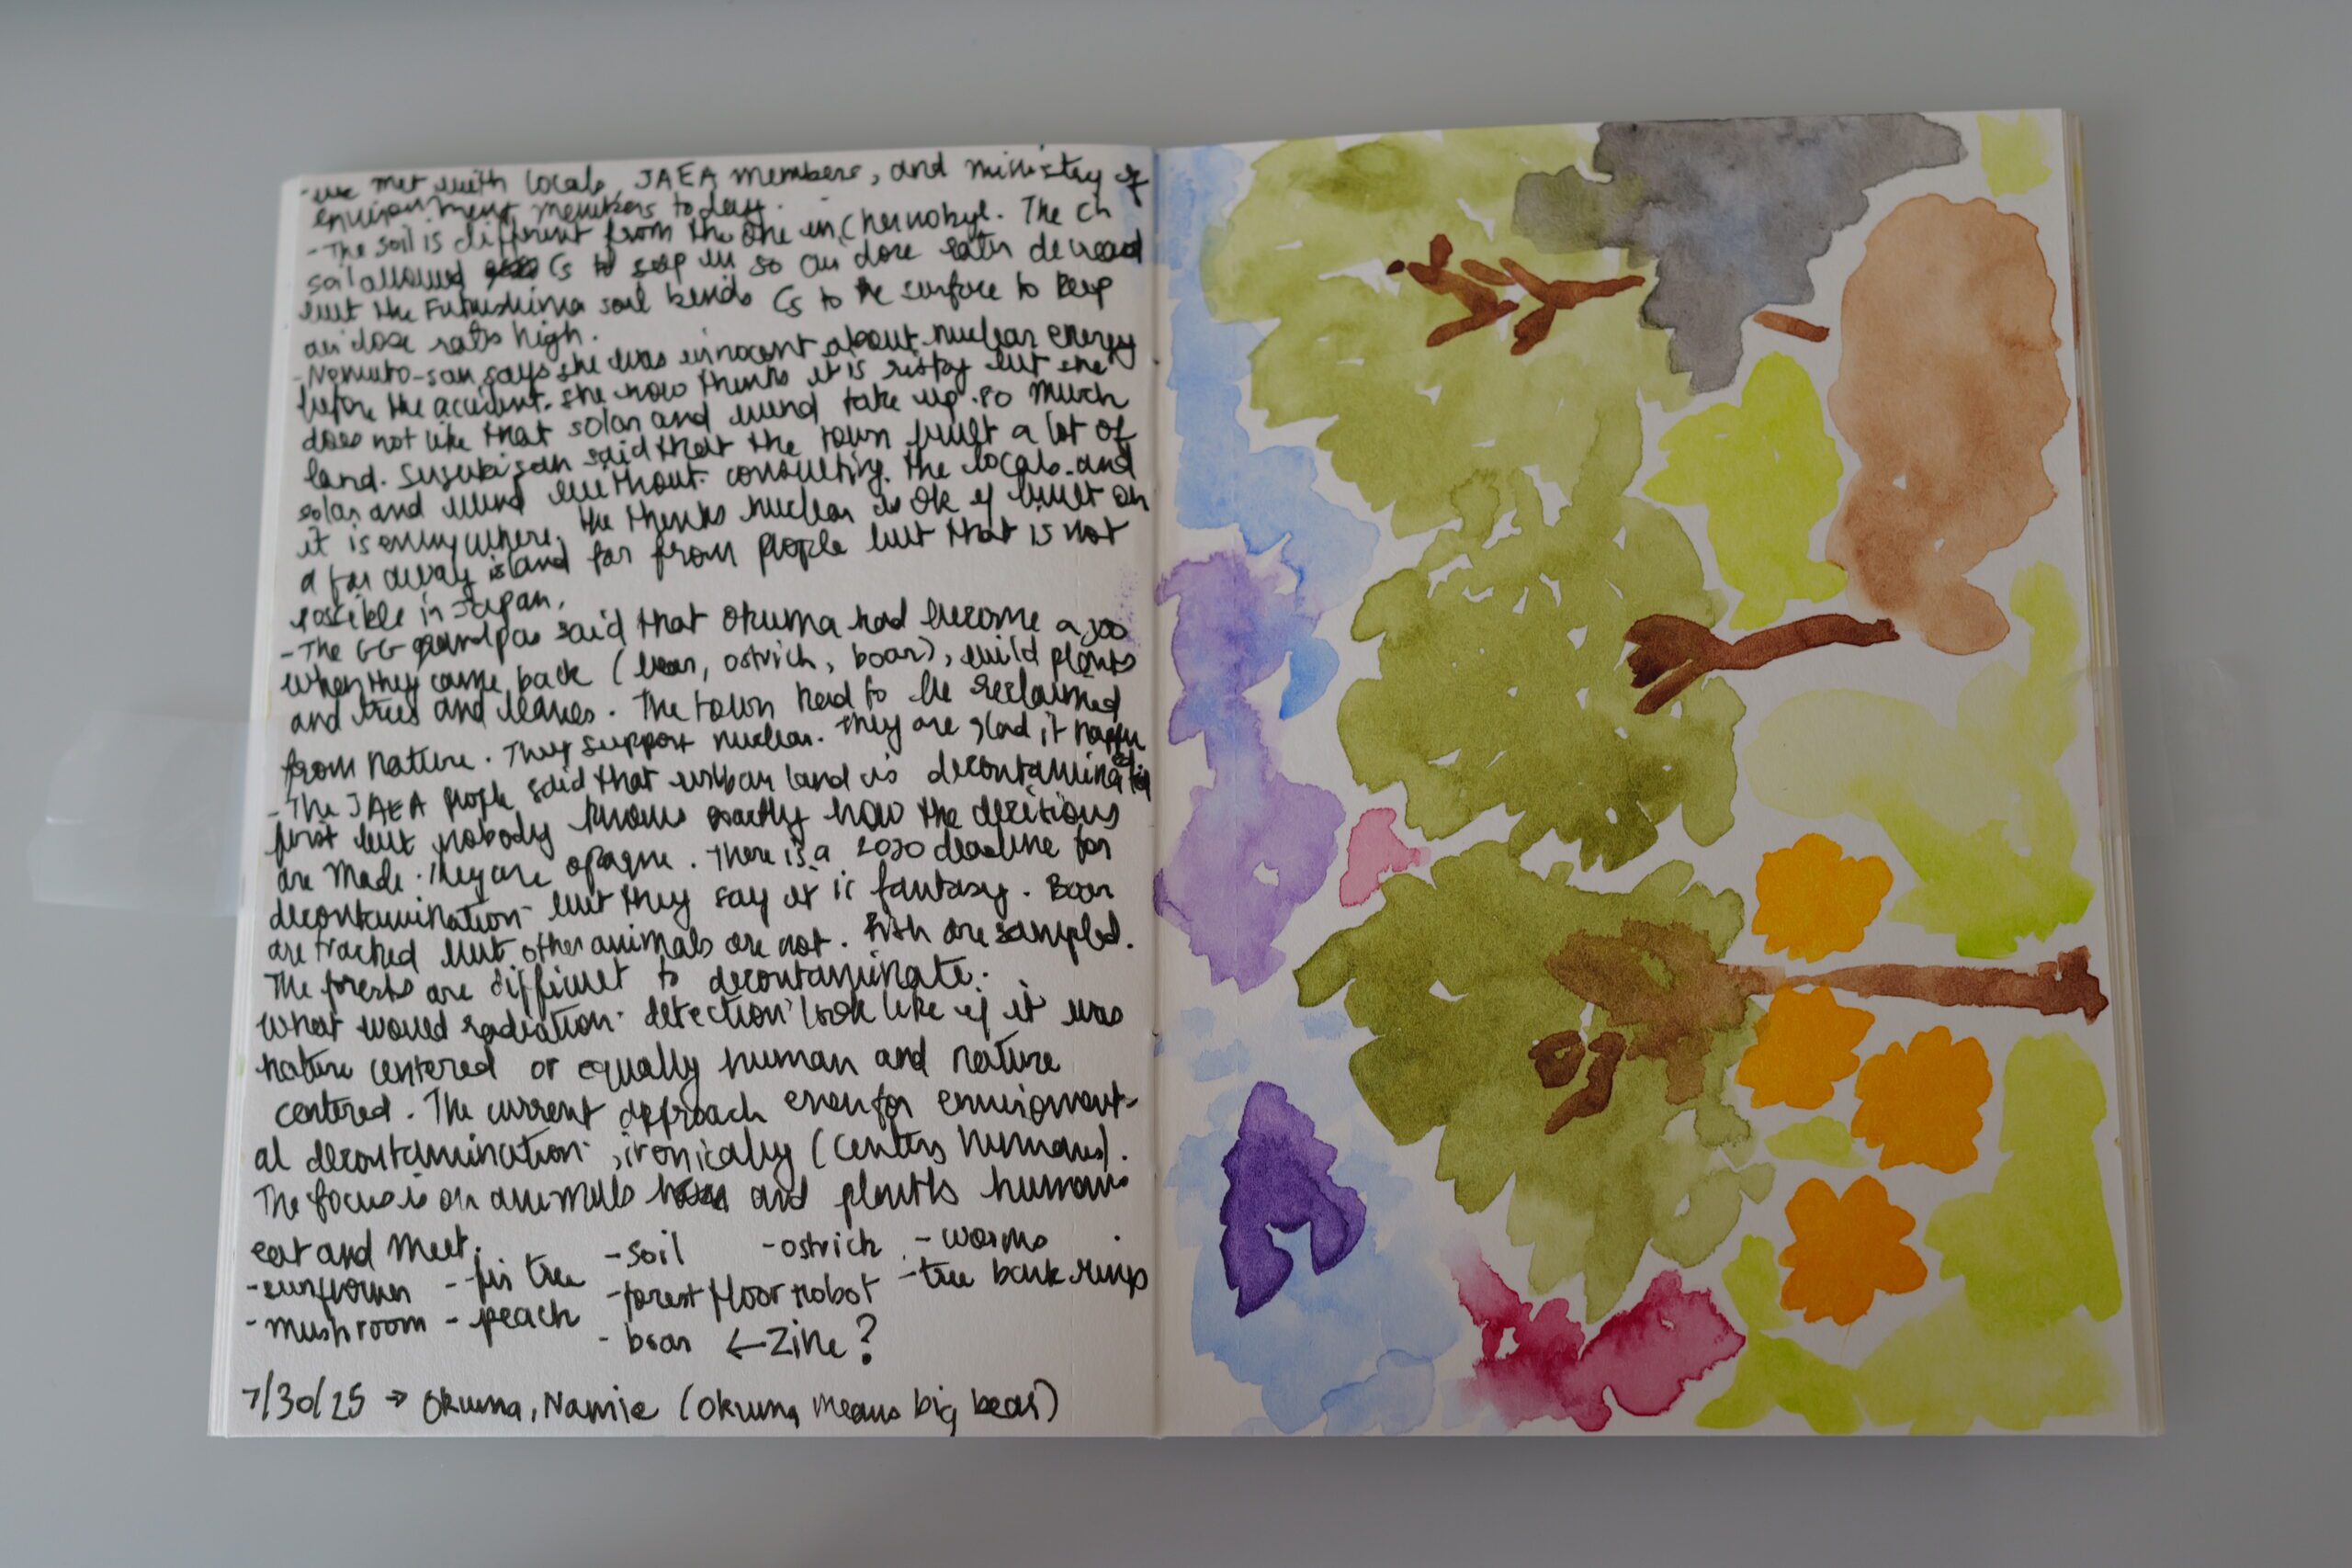 - we met with locals, JAEA members, and ministry of
environment members today.
- The soil is different from the one in Chernobyl. The Ch
soil allowed Cs to seep in so air dose rates decreased
but the Fukushima soil binds Cs to the surface to keep
air dose rates high.
- Nemoto-san says she was innocent about nuclear energy
before the accident. she now thinks it is risky but she
does not like that solar and wind take up so much
land. Suzuki san said that the town built a lot of
solar and wind without consulting the locals and
it is everywhere. He thinks nuclear is ok if built on
a far away island far from people but that is not
possible in Japan.
- The GG grandpas said that Okuma had become a zoo
when they came back (bear, ostrich, boar), wild plants
and trees and leaves. The town had to be reclaimed
from nature. They support nuclear. They are glad it happened
- The JAEA people said that urban land is decontaminated
first but nobody knows exactly how the decisions
are made. They are opaque. There is a deadline for
decontamination but they say it is fantasy. Boar
are tracked but other animals are not. Fish are sampled.
The forests are difficult to decontaminate.
What would radiation detection look like if it was
nature centered or equally human and nature
centered. The current approach even for environment-
al decontamination, ironically (centers humans).
The focus is on animals and plants humans
eat and meet.
- sunflower - fir tree - soil - ostrich - worms
- mushroom - peach - forest floor robot - tree bark rings
- boar ← Zine?
7/30/25 → Okuma, Namie (Okuma means big bear)